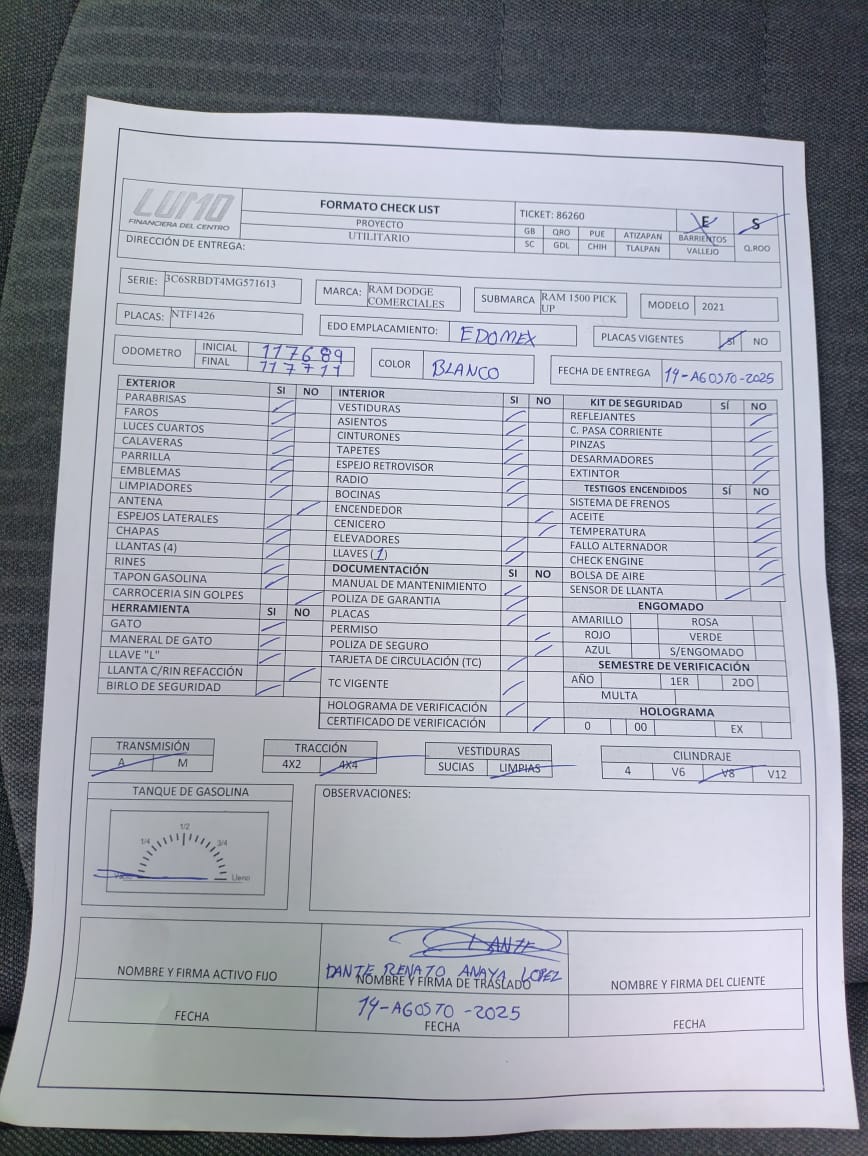 LUMO
FINANCIERA DEL CENTRO
FORMATO CHECK LIST
PROYECTO
UTILITARIO
TICKET: 86260 E S
GB QRO PUE ATIZAPAN BARRIENTOS Q.ROO
SC GDL CHIH TLALPAN VALLEJO
DIRECCIÓN DE ENTREGA:
SERIE: 3C6SRBDT4MG571613
MARCA: RAM DODGE COMERCIALES
SUBMARCA RAM 1500 PICK UP
MODELO 2021
PLACAS: NTF1426
EDO EMPLACAMIENTO: EDOMEX
PLACAS VIGENTES SI NO
ODOMETRO INICIAL 117689
FINAL 117711
COLOR BLANCO
FECHA DE ENTREGA 19-AGOSTO-2025
EXTERIOR SI NO
PARABRISAS
FAROS
LUCES CUARTOS
CALAVERAS
PARRILLA
EMBLEMAS
LIMPIADORES
ANTENA
ESPEJOS LATERALES
CHAPAS
LLANTAS (4)
RINES
TAPON GASOLINA
CARROCERIA SIN GOLPES
HERRAMIENTA SI NO
GATO
MANERAL DE GATO
LLAVE "L"
LLANTA C/RIN REFACCIÓN
BIRLO DE SEGURIDAD
INTERIOR SI NO
VESTIDURAS
ASIENTOS
CINTURONES
TAPETES
ESPEJO RETROVISOR
RADIO
BOCINAS
ENCENDEDOR
CENICERO
ELEVADORES
LLAVES (1)
DOCUMENTACIÓN SI NO
MANUAL DE MANTENIMIENTO
POLIZA DE GARANTIA
PLACAS
PERMISO
POLIZA DE SEGURO
TARJETA DE CIRCULACIÓN (TC)
TC VIGENTE
HOLOGRAMA DE VERIFICACIÓN
CERTIFICADO DE VERIFICACIÓN
KIT DE SEGURIDAD SÍ NO
REFLEJANTES
C. PASA CORRIENTE
PINZAS
DESARMADORES
EXTINTOR
TESTIGOS ENCENDIDOS SÍ NO
SISTEMA DE FRENOS
ACEITE
TEMPERATURA
FALLO ALTERNADOR
CHECK ENGINE
BOLSA DE AIRE
SENSOR DE LLANTA
ENGOMADO
AMARILLO ROSA
ROJO VERDE
AZUL S/ENGOMADO
SEMESTRE DE VERIFICACIÓN
AÑO 1ER 2DO
MULTA
HOLOGRAMA
0 00 EX
TRANSMISIÓN
A M
TRACCIÓN
4X2 4X4
VESTIDURAS
SUCIAS LIMPIAS
CILINDRAJE
4 V6 V8 V12
TANQUE DE GASOLINA
1/4 1/2 3/4
Lleno
OBSERVACIONES:
DANTE
DANTE RENATO ANAYA LOPEZ
NOMBRE Y FIRMA ACTIVO FIJO
NOMBRE Y FIRMA DE TRASLADO
NOMBRE Y FIRMA DEL CLIENTE
19-AGOSTO-2025
FECHA
FECHA
FECHA